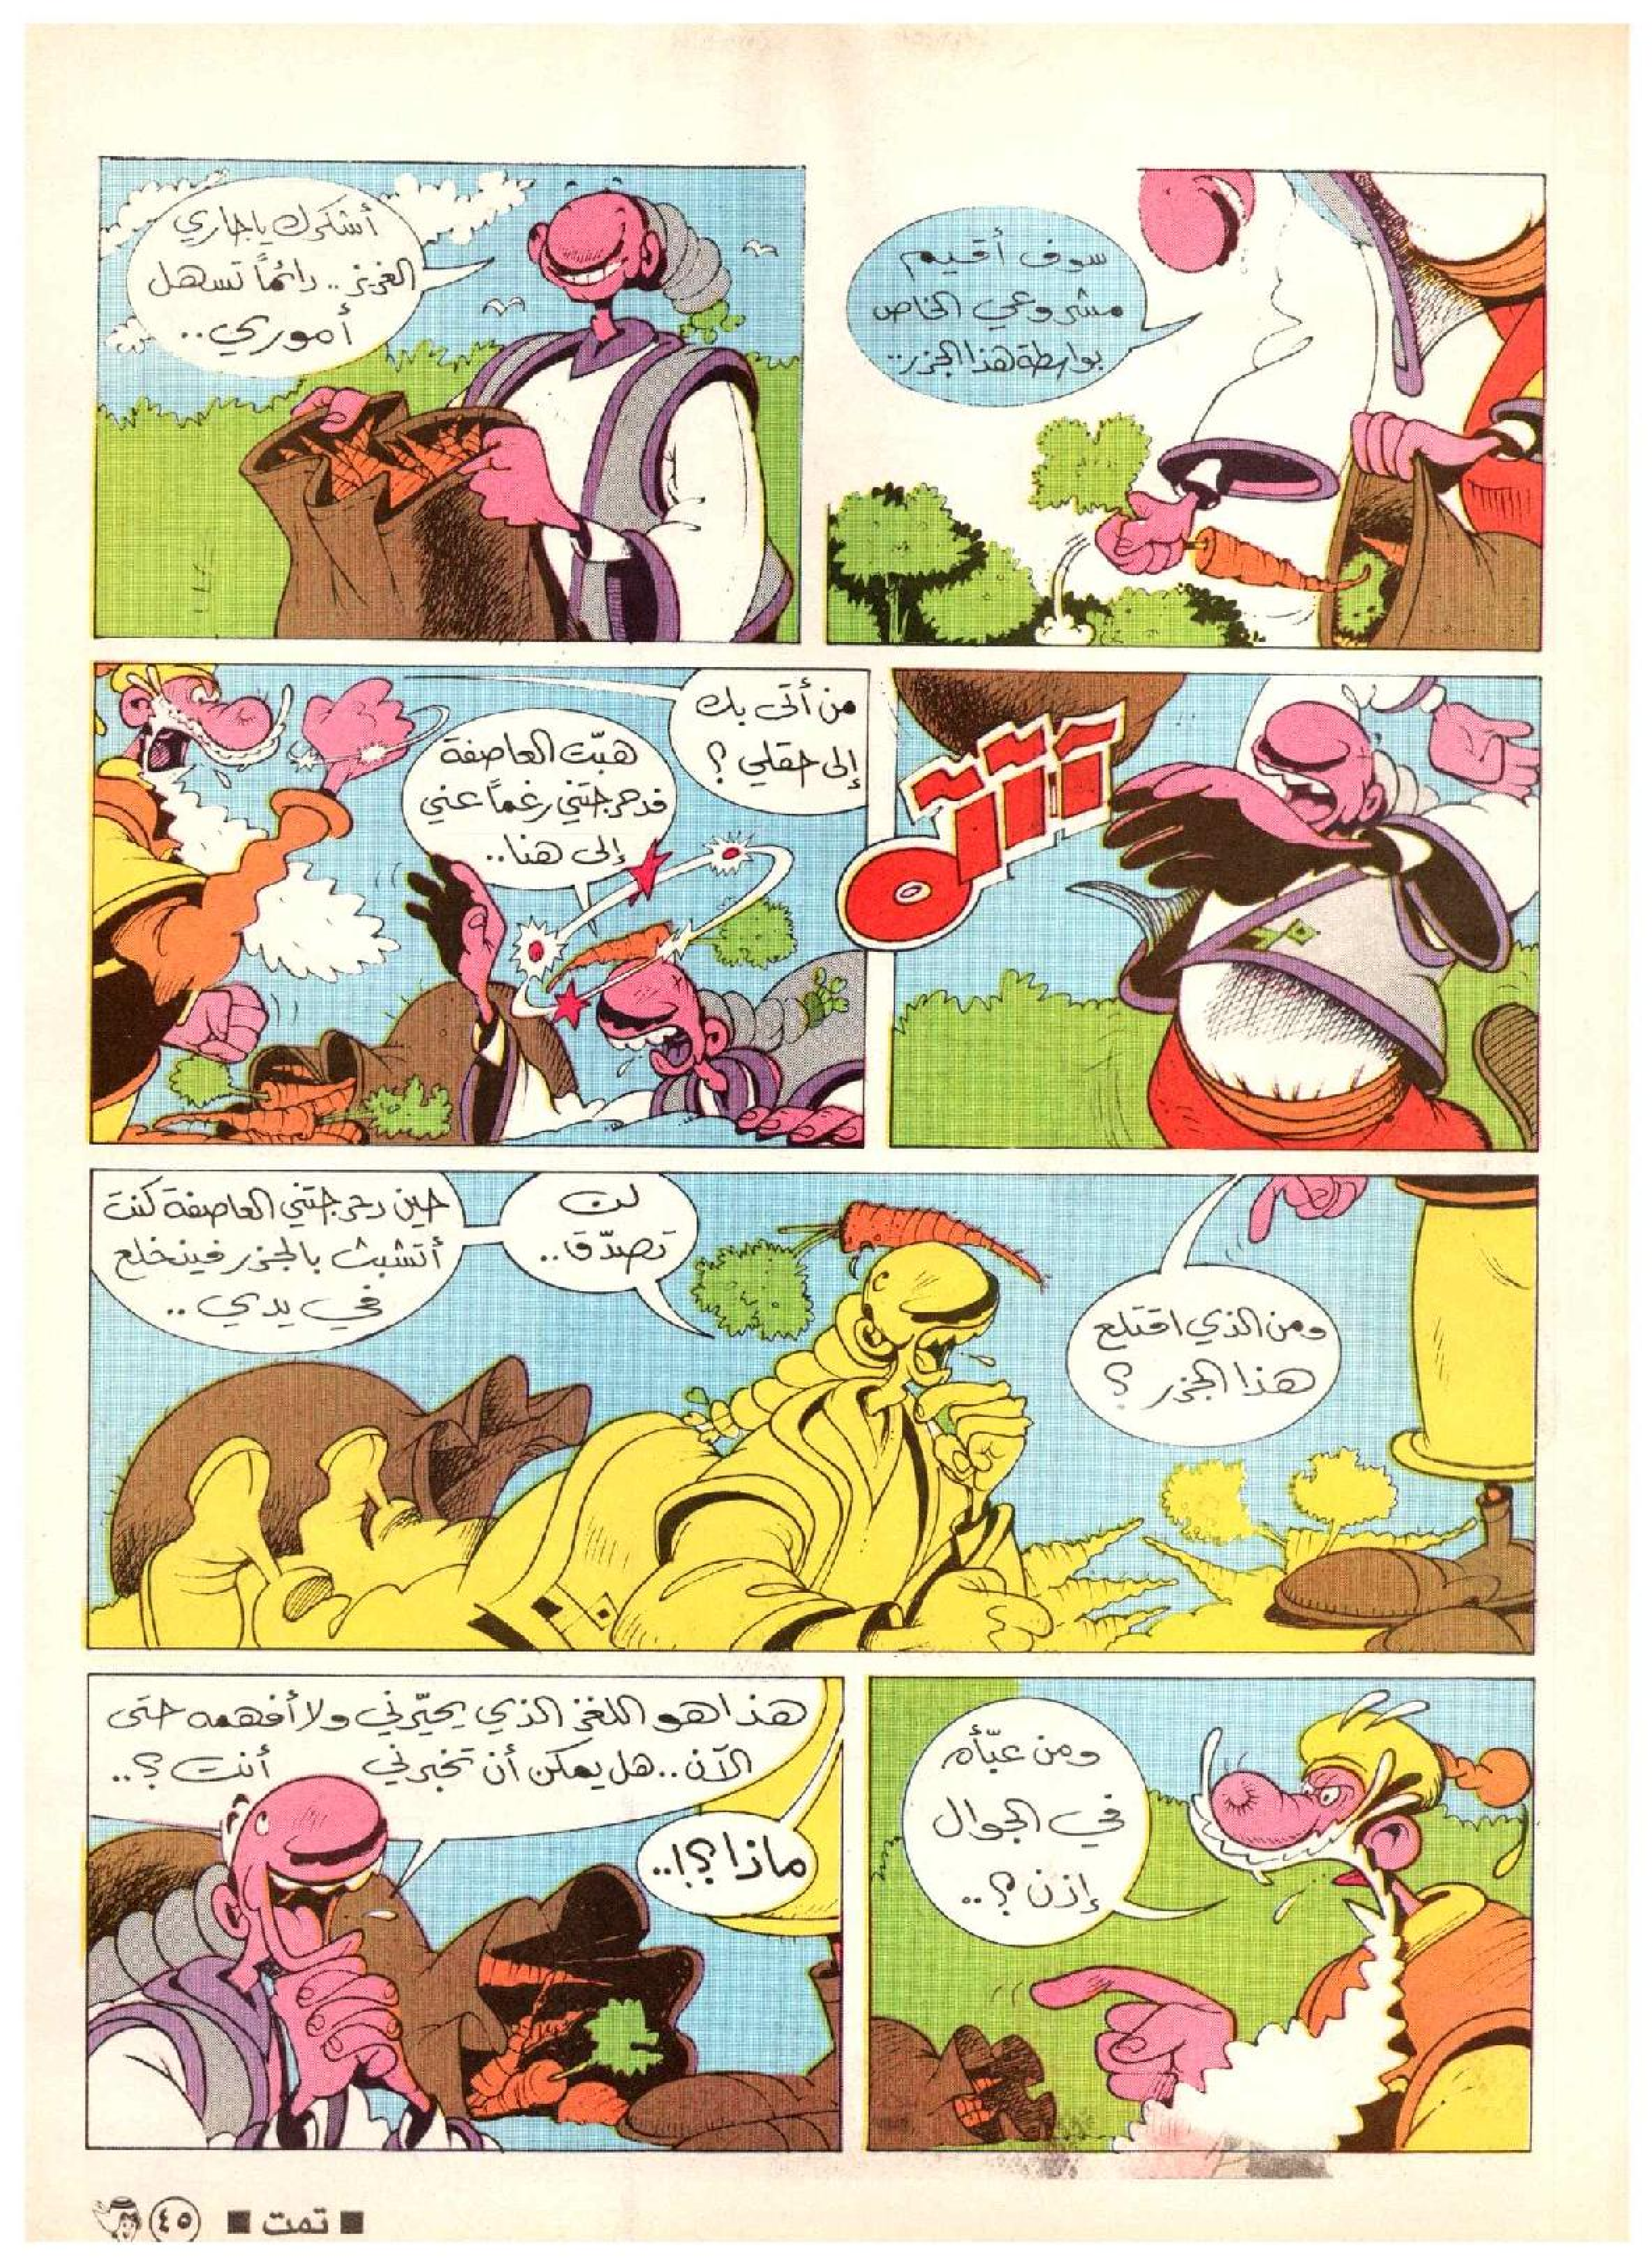 سوف أقيم
مشروعي الخاص
بواسطة هذا الجزر..
أشكرك يا جاري
العزيز.. دائماً تسهل
أموري..
آآآه
من أتى بك
إلى حقلي ؟
هبّت العاصفة
فدحرجتني رغماً عني
إلى هنا..
ومن الذي اقتلع
هذا الجزر ؟
لن
تصدّق..
حين دحرجتني العاصفة كنت
أتشبث بالجزر فينخلع
في يدي ..
ومن عبّأه
في الجوال
إذن ؟..
ماذا؟!..
هذا هو اللغز الذي يحيّرني ولا أفهمه حتى
الآن.. هل يمكن أن تخبرني أنت ؟..
■ تمت ■ ٤٥